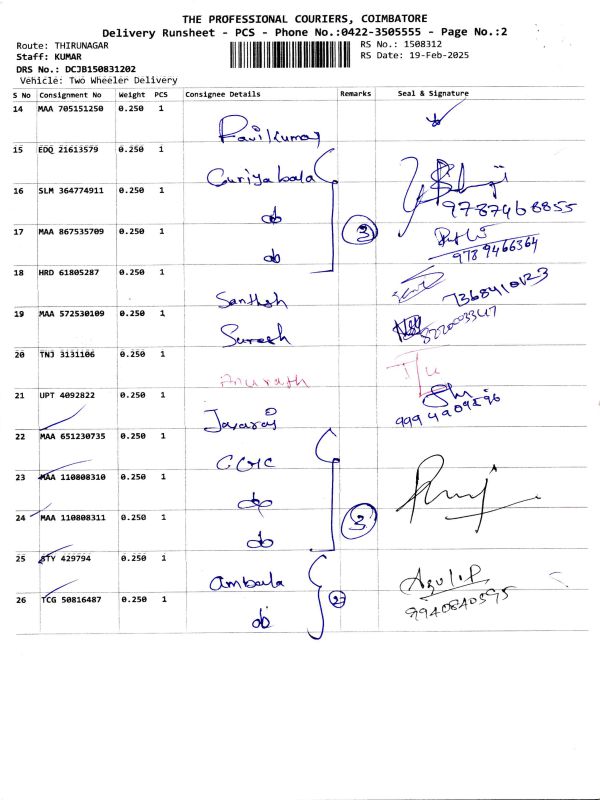 THE PROFESSIONAL COURIERS, COIMBATORE
Delivery Runsheet - PCS - Phone No.:0422-3505555 - Page No.:2
Route: THIRUNAGAR RS No.: 1508312
Staff: KUMAR RS Date: 19-Feb-2025
DRS No.: DCJB150831202
Vehicle: Two Wheeler Delivery
S No Consignment No Weight PCS Consignee Details Remarks Seal & Signature
14 MAA 705151250 0.250 1
Ravikumar
15 EDQ 21613579 0.250 1
Curiyabala
16 SLM 364774911 0.250 1
9787468855
do
17 MAA 867535709 0.250 1
3
9789466364
do
18 HRD 61805287 0.250 1
Santhosh
7368410123
19 MAA 572530109 0.250 1
Suresh
20 TNJ 3131106 0.250 1
Anurath
21 UPT 4092822 0.250 1
Jayaraj
22 MAA 651230735 0.250 1
23 MAA 110808310 0.250 1
do
24 MAA 110808311 0.250 1
3
do
25 STY 429794 0.250 1
Ambala
26 TCG 50816487 0.250 1
2
9940840595
do